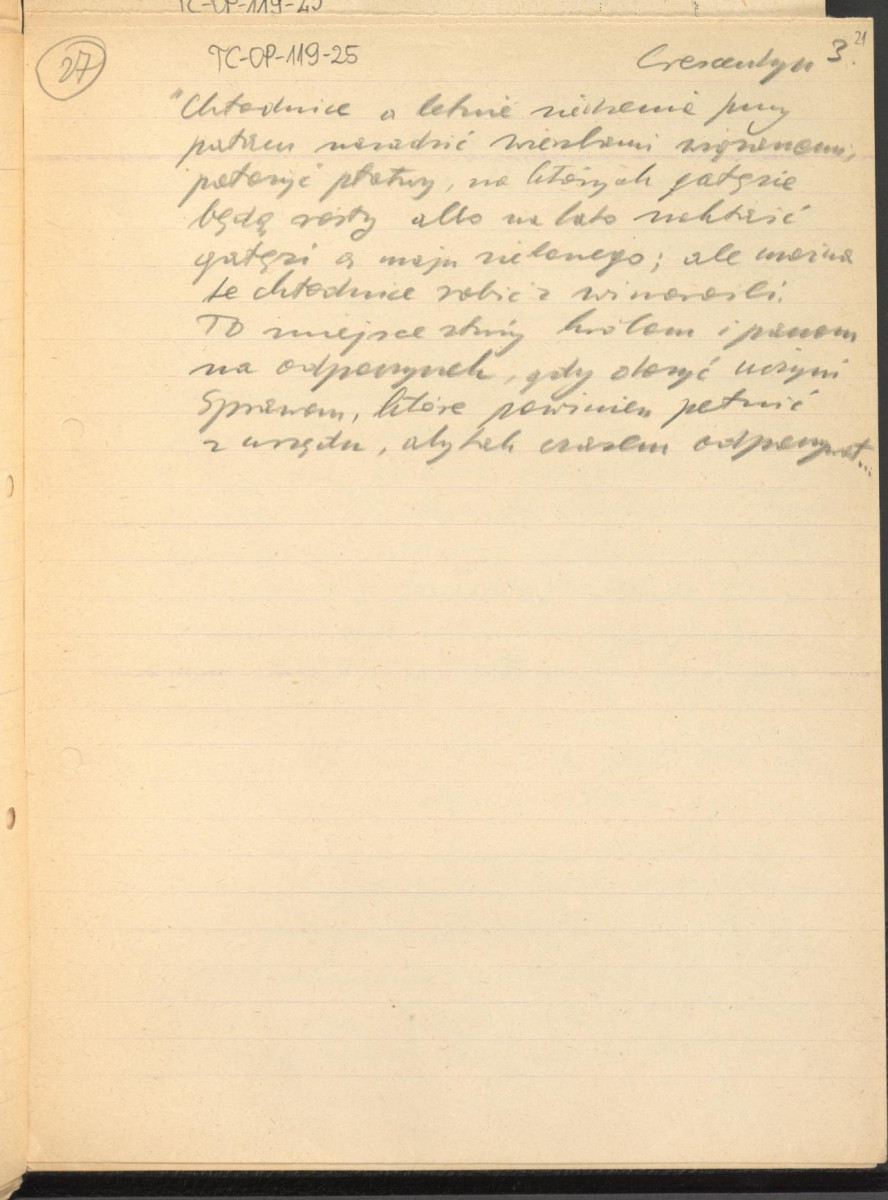 TC-OP-119-25
27
TC-OP-119-25
Crescentyn 3.
21
"Chłodnice a letnie siedzenie przy
pałacu nasadzić wierzbami wiązanemi,
położyć płatwy, na których gałęzie
będą rosły albo na lato nakłaść
gałęzi a maju zielonego; ale można
te chłodnice robić z winorośli.
To miejsce służy królom i panom
na odpoczynek, gdy dosyć uczyni
sprawom, które powinien pełnić
z urzędu, aby tak czasem odpoczywał...